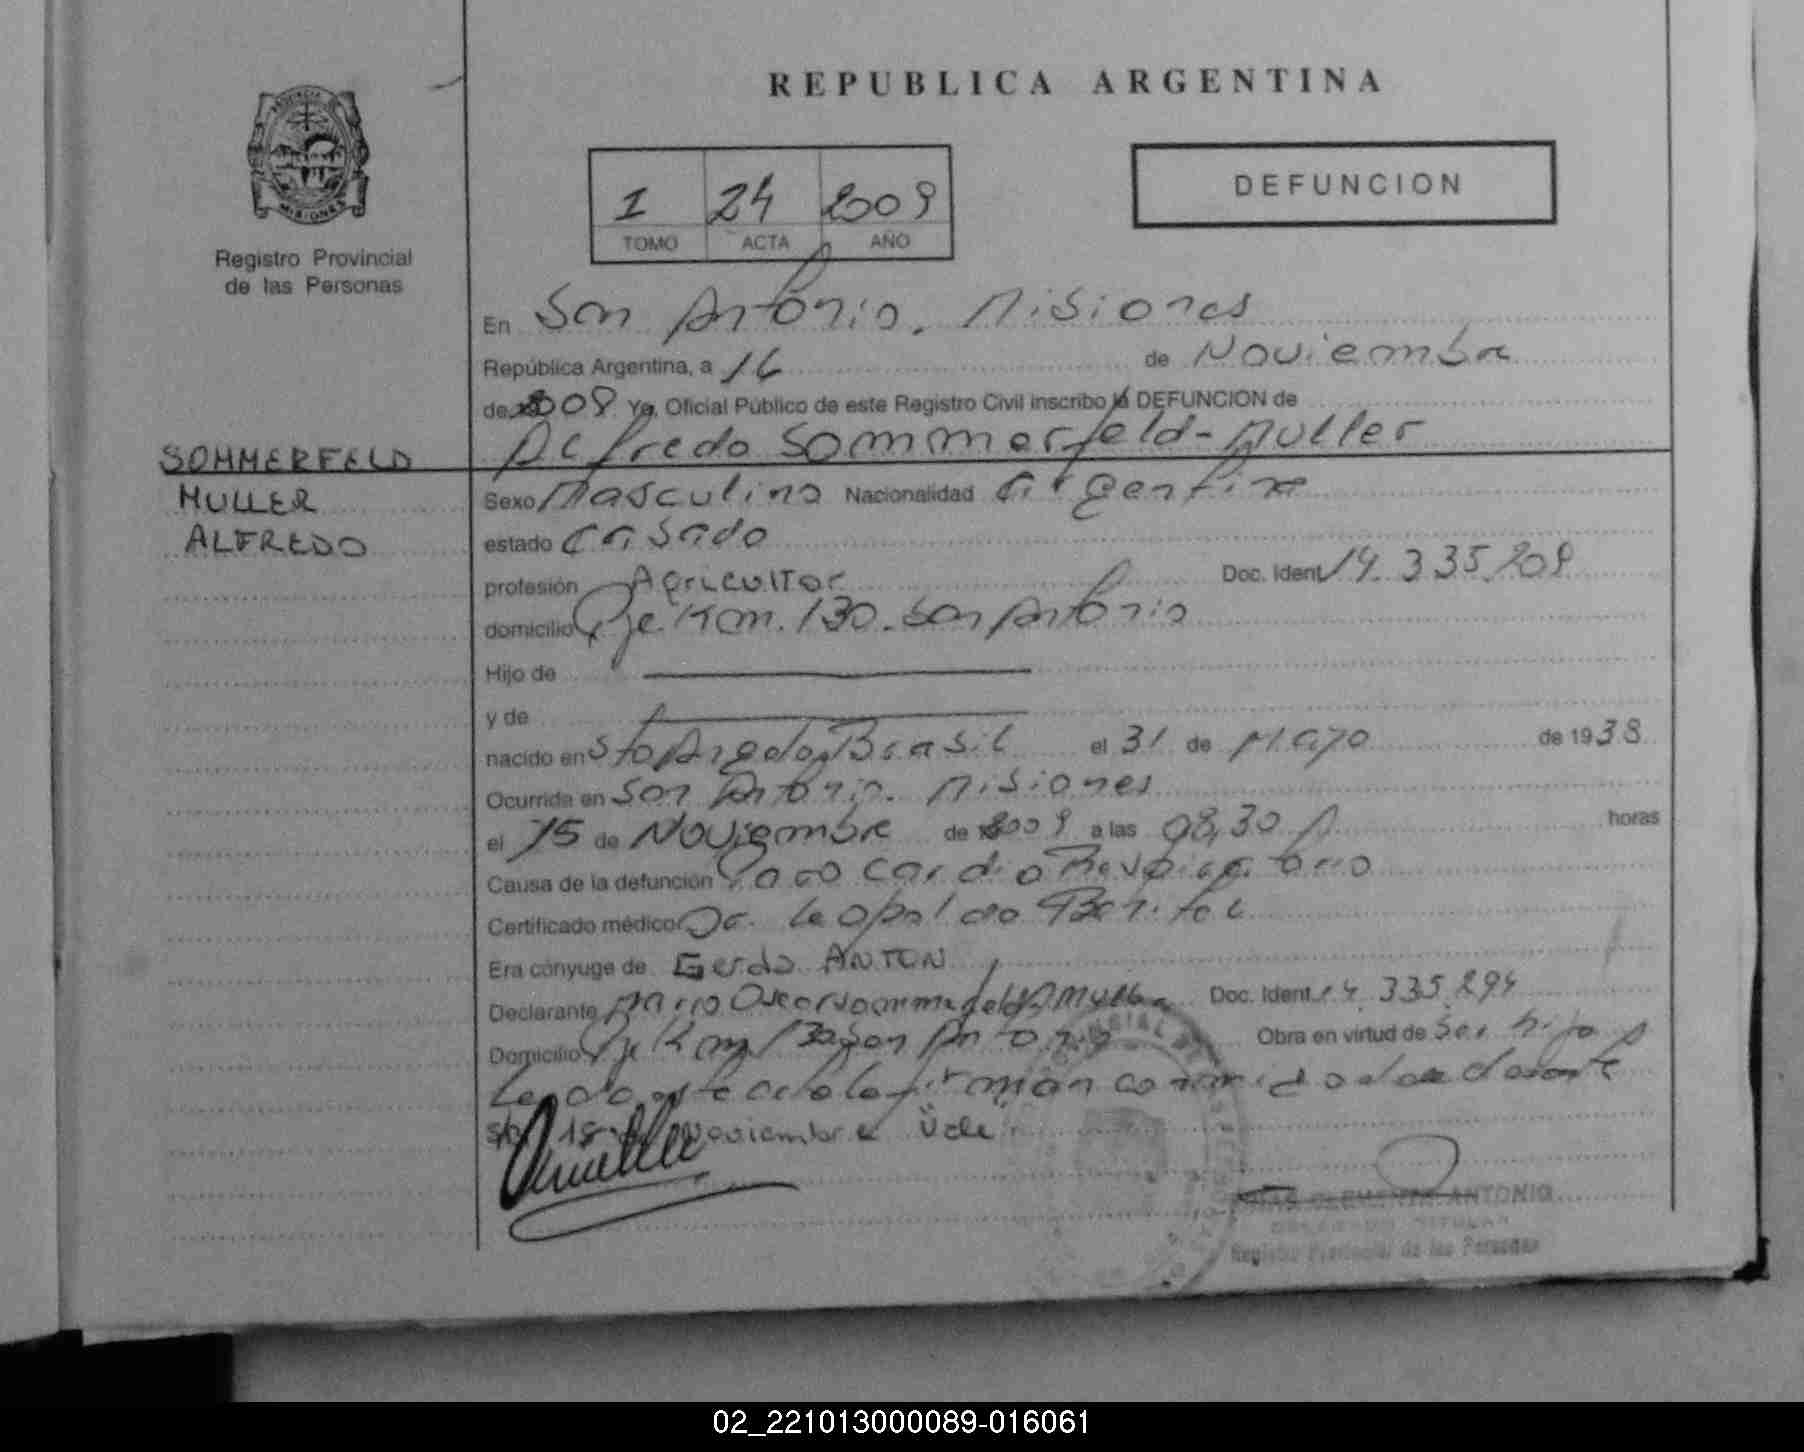 REPUBLICA ARGENTINA
DEFUNCION
I 24 2009
TOMO ACTA AÑO
MISIONES
Registro Provincial
de las Personas
En San Antonio. Misiones
República Argentina, a 16 de Noviembre
de 2009 Yo, Oficial Público de este Registro Civil inscribo la DEFUNCION de
Alfredo Sommerfeld - Muller
SOMMERFELD
MULLER
ALFREDO
Sexo Masculino Nacionalidad Argentina
estado Casado
profesión Agricultor Doc. Ident. 14.335.209
domicilio Pje Km. 130. San Antonio
Hijo de
y de
nacido en Sto Angelo Brasil el 31 de Mayo de 1938
Ocurrida en San Antonio. Misiones
el 15 de Noviembre de 2009 a las 08,30 horas
Causa de la defunción Paro Cardio Respiratorio
Certificado médico Dr. Leopoldo
Era cónyuge de Gerda ANTON
Declarante Mario Oscar Sommerfeld Doc. Ident. 14.335.294
Domicilio Pje Km 130 San Antonio Obra en virtud de Ser hijo
firman conmigo declarante
18 Noviembre Vale
CLEMENTE ANTONIO
TITULAR
Registro Provincial de las Personas
02_221013000089-016061